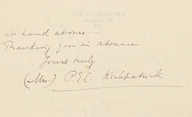 in hand above —
Thanking you in advance
Yours truly
(Mrs.) P E C Kirkpatrick